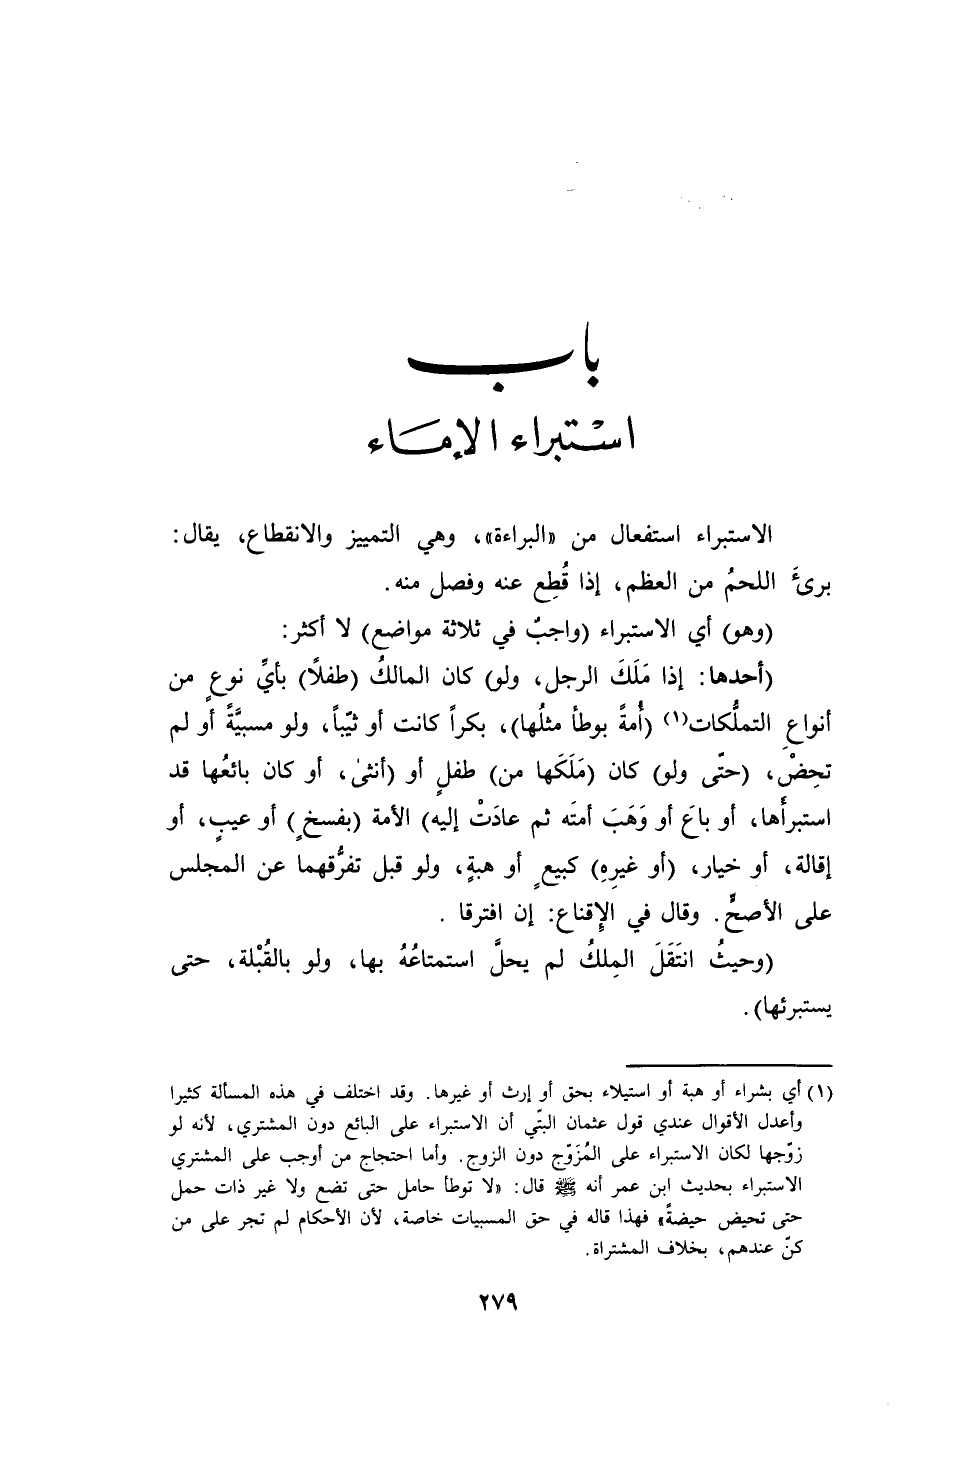 باب
استبراء الإماء
الاستبراء استفعال من «البراءة»، وهي التمييز والانقطاع، يقال:
برئَ اللحمُ من العظم، إذا قُطِع عنه وفصل منه.
(وهو) أي الاستبراء (واجبٌ في ثلاثة مواضع) لا أكثر:
(أحدها: إذا مَلَكَ الرجل، ولو) كان المالكُ (طفلًا) بأيِّ نوعٍ من
أنواعِ التملُّكات(١) (أُمةً بوطأ مثلُها)، بكراً كانت أو ثيّباً، ولو مسبيَّةً أو لم
تحِضْ، (حتّى ولو) كان (مَلَكَها من) طفلٍ أو (أنثىٰ، أو كان بائعُها قد
استبرأَها، أو باعَ أو وَهَبَ أمتَه ثم عادَتْ إليه) الأمة (بفسخٍ) أو عيبٍ، أو
إقالة، أو خيار، (أو غيرِهِ) كبيعٍ أو هبةٍ، ولو قبل تفرُّقهما عن المجلس
على الأصحِّ. وقال في الإقناع: إن افترقا .
(وحيثُ انتَقَلَ المِلكُ لم يحلَّ استمتاعُهُ بها، ولو بالقُبْلة، حتى
يستبرئها).
(١) أي بشراء أو هبة أو استيلاء بحق أو إرث أو غيرها. وقد اختلف في هذه المسألة كثيرا
وأعدل الأقوال عندي قول عثمان البتّي أن الاستبراء على البائع دون المشتري، لأنه لو
زوّجها لكان الاستبراء على المُزَوّج دون الزوج. وأما احتجاج من أوجب على المشتري
الاستبراء بحديث ابن عمر أنه ﷺ قال: «لا توطأ حامل حتى تضع ولا غير ذات حمل
حتى تحيض حيضةً» فهذا قاله في حق المسبيات خاصة، لأن الأحكام لم تجر على من
كنّ عندهم، بخلاف المشتراة.
٢٧٩